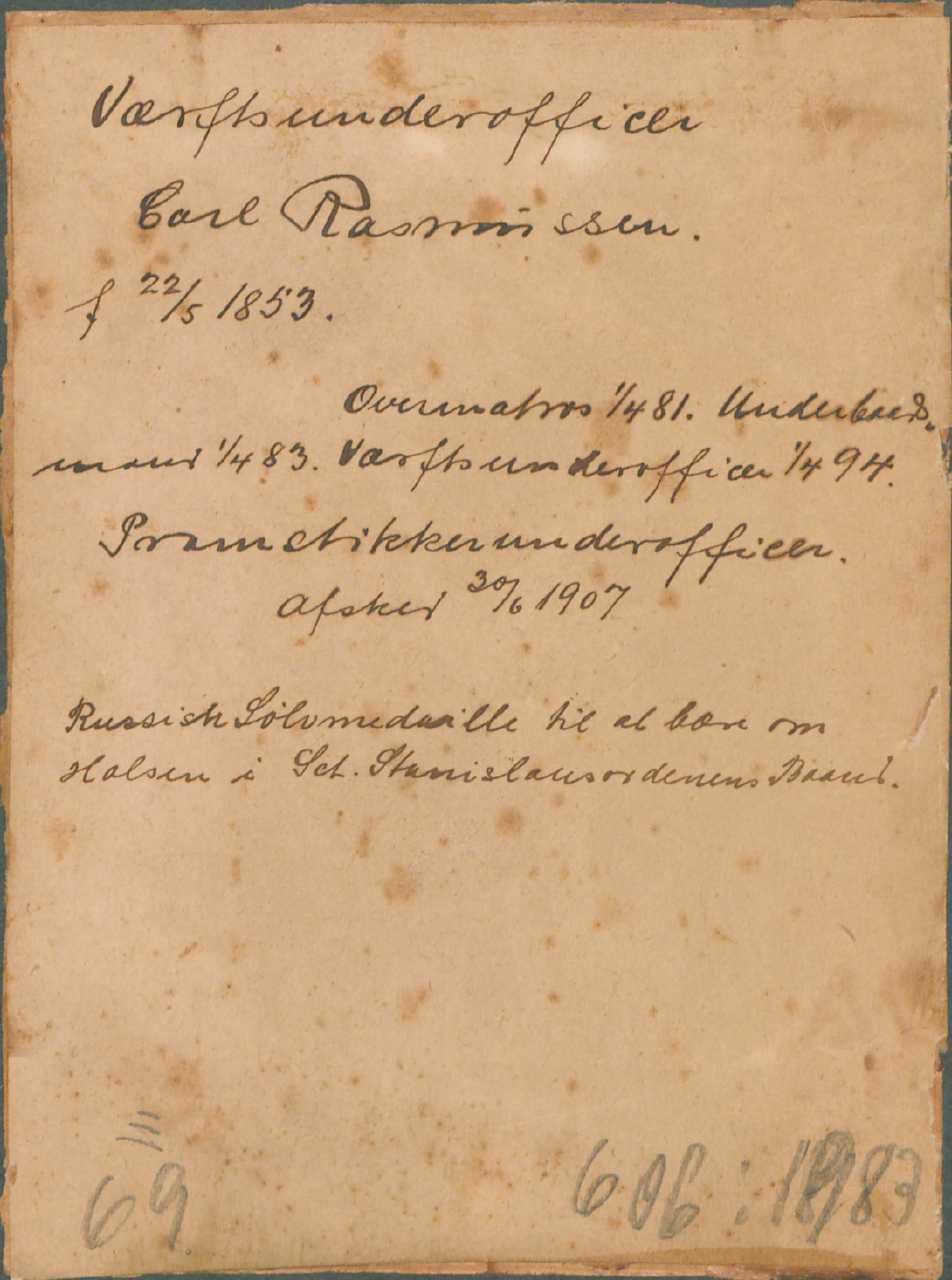 Værftsunderofficer
Carl Rasmussen.
f 22/5 1853.
Overmatros 1/4 81. Underbaads-
mand 1/4 83. Værftsunderofficer 1/4 94.
Pramstikkerunderofficer.
Afsked 30/6 1907
Russisk Sølvmedaille til at bære om
Halsen i Sct. Stanislausordenens Baand.
III
69
606:1983